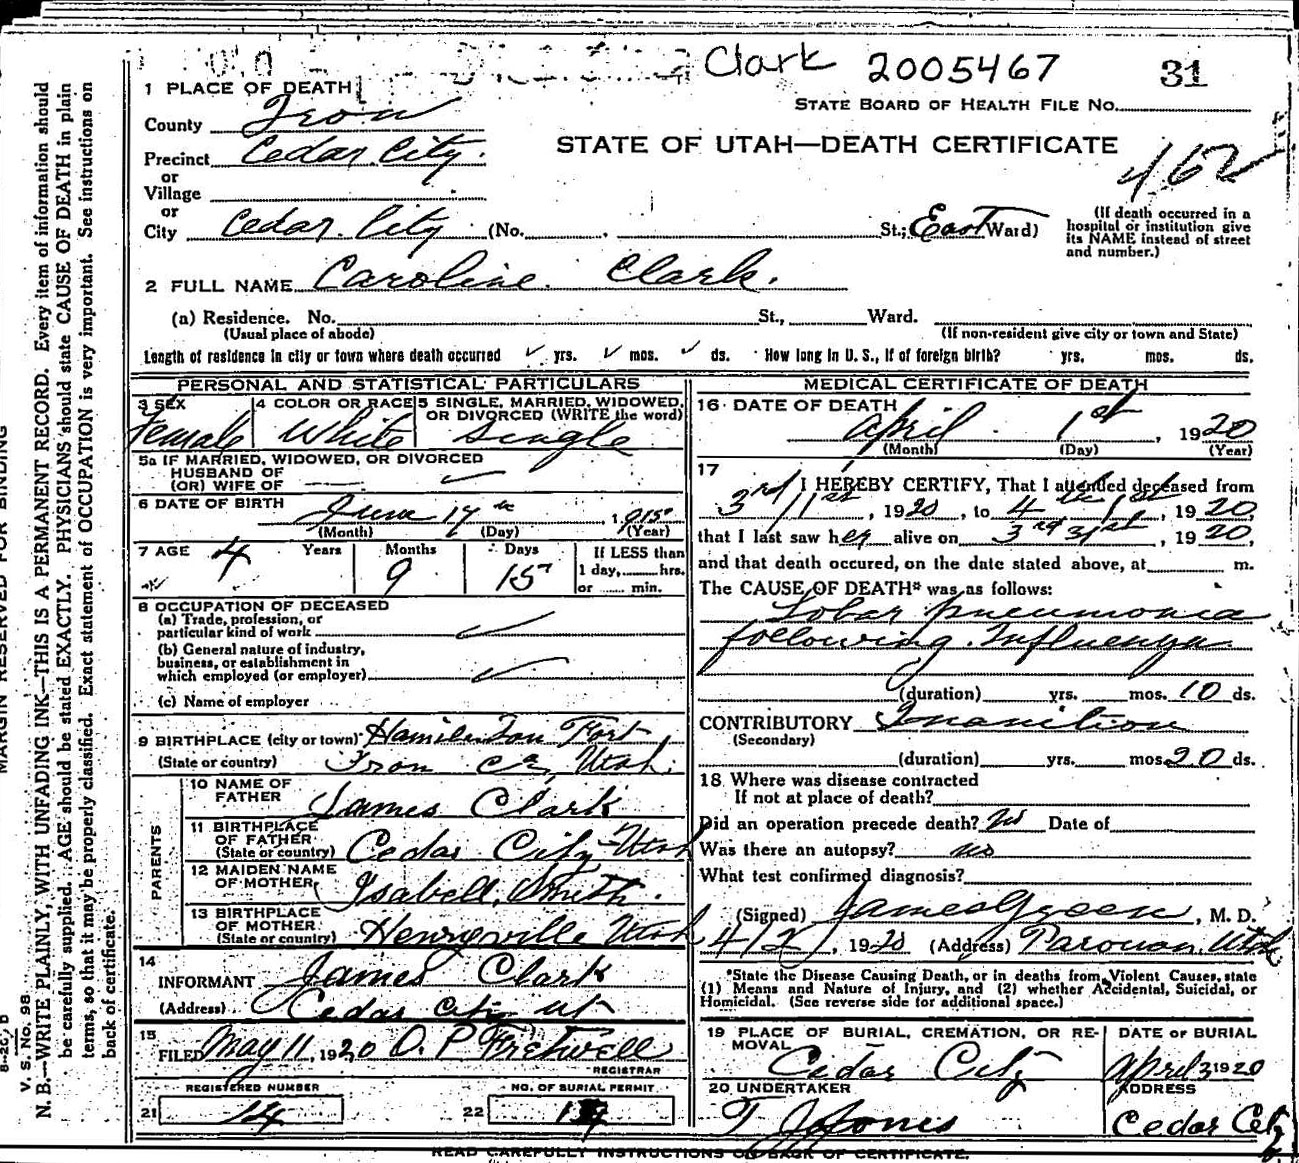 Clark 2005467 31
STATE BOARD OF HEALTH FILE No.
STATE OF UTAH—DEATH CERTIFICATE
462
1 PLACE OF DEATH
County Iron
Precinct Cedar City.
or
Village
or
City Cedar City (No. St.; East Ward)
(If death occurred in a
hospital or institution give
its NAME instead of street
and number.)
2 FULL NAME Caroline Clark.
(a) Residence. No. St., Ward.
(Usual place of abode) (If non-resident give city or town and State)
Length of residence in city or town where death occurred ✓ yrs. ✓ mos. ✓ ds. How long in U. S., if of foreign birth? yrs. mos. ds.
PERSONAL AND STATISTICAL PARTICULARS
3 SEX
Female
4 COLOR OR RACE
White
5 SINGLE, MARRIED, WIDOWED,
OR DIVORCED (WRITE the word)
Single
5a IF MARRIED, WIDOWED, OR DIVORCED
HUSBAND OF
(OR) WIFE OF — ✓
6 DATE OF BIRTH
June 17th, 1915
(Month) (Day) (Year)
7 AGE 4 Years 9 Months 15 Days
If LESS than
1 day, hrs.
or min.
8 OCCUPATION OF DECEASED
(a) Trade, profession, or
particular kind of work ✓
(b) General nature of industry,
business, or establishment in
which employed (or employer) ✓
(c) Name of employer
9 BIRTHPLACE (city or town) Hamilton Fort
(State or country) Iron Co, Utah.
PARENTS
10 NAME OF
FATHER James Clark
11 BIRTHPLACE
OF FATHER
(State or country) Cedar City Utah
12 MAIDEN NAME
OF MOTHER Isabell Smith.
13 BIRTHPLACE
OF MOTHER
(State or country) Henryeville Utah
14
INFORMANT James Clark
(Address) Cedar City Ut
15
FILED May 11, 1920 O. P. Fretwell
REGISTRAR
REGISTERED NUMBER
21 14
NO. OF BURIAL PERMIT
22
MEDICAL CERTIFICATE OF DEATH
16 DATE OF DEATH
April 1st, 1920
(Month) (Day) (Year)
17
I HEREBY CERTIFY, That I attended deceased from
3rd 11st, 1920, to 4th 1st, 1920,
that I last saw her alive on 3rd 31st, 1920,
and that death occured, on the date stated above, at m.
The CAUSE OF DEATH* was as follows:
Lobar pneumonia
following Influenza
(duration) yrs. mos. 10 ds.
CONTRIBUTORY Inanition
(Secondary)
(duration) yrs. mos. 20 ds.
18 Where was disease contracted
If not at place of death?
Did an operation precede death? No Date of
Was there an autopsy? no
What test confirmed diagnosis?
(Signed) James Green, M. D.
4/2/, 1920 (Address) Parowan, Utah
*State the Disease Causing Death, or in deaths from Violent Causes, state
(1) Means and Nature of Injury, and (2) whether Accidental, Suicidal, or
Homicidal. (See reverse side for additional space.)
19 PLACE OF BURIAL, CREMATION, OR RE-
MOVAL Cedar City
DATE OF BURIAL
April 3 1920
20 UNDERTAKER
T J Jones
ADDRESS
Cedar City
READ CAREFULLY INSTRUCTIONS ON BACK OF CERTIFICATE.
MARGIN RESERVED FOR BINDING
V. S. No. 98
N. B.—WRITE PLAINLY, WITH UNFADING INK—THIS IS A PERMANENT RECORD. Every item of information should
be carefully supplied. AGE should be stated EXACTLY. PHYSICIANS should state CAUSE OF DEATH in plain
terms, so that it may be properly classified. Exact statement of OCCUPATION is very important. See instructions on
back of certificate.